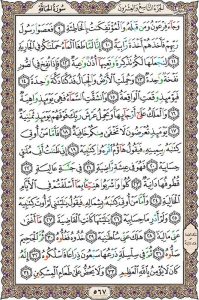 سُورَةُ الحَاقَّة الجُزْءُ التَّاسِعُ وَالعِشْرُونَ
وَجَآءَ فِرْعَوْنُ وَمَن قَبْلَهُۥ وَٱلْمُؤْتَفِكَٰتُ بِٱلْخَاطِئَةِ ٩ فَعَصَوْا۟ رَسُولَ
رَبِّهِمْ فَأَخَذَهُمْ أَخْذَةً رَّابِيَةً ١٠ إِنَّا لَمَّا طَغَا ٱلْمَآءُ حَمَلْنَٰكُمْ فِى ٱلْجَارِيَةِ
١١ لِنَجْعَلَهَا لَكُمْ تَذْكِرَةً وَتَعِيَهَآ أُذُنٌ وَٰعِيَةٌ ١٢ فَإِذَا نُفِخَ فِى ٱلصُّورِ
نَفْخَةٌ وَٰحِدَةٌ ١٣ وَحُمِلَتِ ٱلْأَرْضُ وَٱلْجِبَالُ فَدُكَّتَا دَكَّةً وَٰحِدَةً ١٤
فَيَوْمَئِذٍ وَقَعَتِ ٱلْوَاقِعَةُ ١٥ وَٱنشَقَّتِ ٱلسَّمَآءُ فَهِىَ يَوْمَئِذٍ وَاهِيَةٌ
١٦ وَٱلْمَلَكُ عَلَىٰٓ أَرْجَآئِهَا ۚ وَيَحْمِلُ عَرْشَ رَبِّكَ فَوْقَهُمْ يَوْمَئِذٍ ثَمَٰنِيَةٌ
١٧ يَوْمَئِذٍ تُعْرَضُونَ لَا تَخْفَىٰ مِنكُمْ خَافِيَةٌ ١٨ فَأَمَّا مَنْ أُوتِىَ
كِتَٰبَهُۥ بِيَمِينِهِۦ فَيَقُولُ هَآؤُمُ ٱقْرَءُوا۟ كِتَٰبِيَهْ ١٩ إِنِّى ظَنَنتُ أَنِّى مُلَٰقٍ
حِسَابِيَهْ ٢٠ فَهُوَ فِى عِيشَةٍ رَّاضِيَةٍ ٢١ فِى جَنَّةٍ عَالِيَةٍ ٢٢
قُطُوفُهَا دَانِيَةٌ ٢٣ كُلُوا۟ وَٱشْرَبُوا۟ هَنِيٓـًٔۢا بِمَآ أَسْلَفْتُمْ فِى ٱلْأَيَّامِ
ٱلْخَالِيَةِ ٢٤ وَأَمَّا مَنْ أُوتِىَ كِتَٰبَهُۥ بِشِمَالِهِۦ فَيَقُولُ يَٰلَيْتَنِى لَمْ أُوتَ كِتَٰبِيَهْ
٢٥ وَلَمْ أَدْرِ مَا حِسَابِيَهْ ٢٦ يَٰلَيْتَهَا كَانَتِ ٱلْقَاضِيَةَ ٢٧ مَآ أَغْنَىٰ
عَنِّى مَالِيَهْ ۜ ٢٨ هَلَكَ عَنِّى سُلْطَٰنِيَهْ ٢٩ خُذُوهُ فَغُلُّوهُ ٣٠ ثُمَّ ٱلْجَحِيمَ
صَلُّوهُ ٣١ ثُمَّ فِى سِلْسِلَةٍ ذَرْعُهَا سَبْعُونَ ذِرَاعًا فَٱسْلُكُوهُ ٣٢
إِنَّهُۥ كَانَ لَا يُؤْمِنُ بِٱللَّهِ ٱلْعَظِيمِ ٣٣ وَلَا يَحُضُّ عَلَىٰ طَعَامِ ٱلْمِسْكِينِ ٣٤
٥٦٧